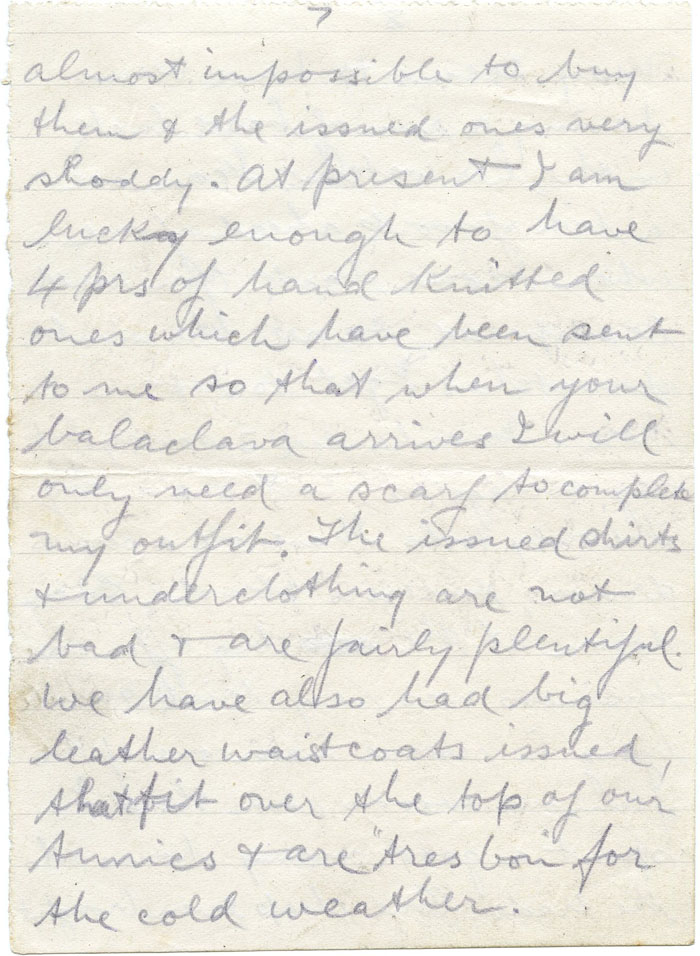 7
almost impossible to buy
them & the issued ones very
shoddy. At present I am
lucky enough to have
4 prs of hand knitted
ones which have been sent
to me so that when your
balaclava arrives I will
only need a scarf to complete
my outfit. The issued shirts
& underclothing are not
bad & are fairly plentiful.
We have also had big
leather waistcoats issued,
that fit over the top of our
tunics & are "tres bon" for
the cold weather.